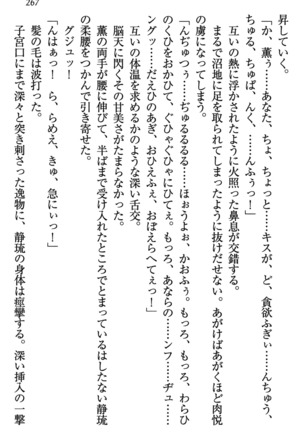 267
昇していく。
「か、薫ぅ……あなた、ちょ、ちょっと……キスが、ど、貪欲ふぎぃ……んちゅう、
ちゅる、ちゅぱ、んく、……んふぅっ!」
互いの熱に浮かされたように火照った鼻息が交錯する。
まるで沼地に足を取られてしまったように抜けだせない。あがけばあがく程肉悦
の虜になってしまう。
「んぢゅつぅ……ぢゅるるるる……ほぉうよぉ、かおふぅ。もっろ、もっろ、わらひ
のくひをかひて、ぐひゃぐひゃにひてぇ。もっろ、あならの……シンフ……ヂュ……
ングッ……だえひのあぎ、おひえふぇ、おぼえらへてぇっ!」
互いの体温を求めるかのような深い舌交。
脳天に閃くその甘美さがたまらなかった。
薫の両手が腰に伸びて、半ばまで受け入れたところでとまっているはしたない静琉
の柔腰をつかんで引き寄せた。
グジュッ!
「んはぁっ! ら、らめえ、きゅ、急にぃっ!」
髪の毛は波打った。
子宮口にまで深々と突き刺さった逸物に、静琉の身体は痙攣する。深い挿入の一撃